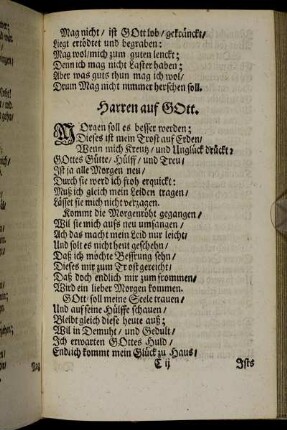 Mag nicht / ist GOtt lob / gekränckt /
Liegt ertödtet und begraben:
Mag wol / mich zum guten lenckt;
Denn ich mag nicht Laster haben;
Aber was guts thun mag ich wol /
Drum Mag nicht nimmer herschen soll.
Harren auf GOtt.
MOrgen soll es besser werden;
Dieses ist mein Trost auf Erden /
Wenn mich Kreutz / und Unglück drückt;
GOttes Gütte / Hülff / und Treu /
Ist ja alle Morgen neu /
Durch sie werd ich froh erquickt:
Muß ich gleich mein Leiden tragen /
Lässet sie mich nicht verzagen.
Kommt die Morgenröht gegangen /
Wil sie mich aufs neu umfangen /
Ach das macht mein Leid nur leicht /
Und solt es nicht heut geschehn /
Daß ich möchte Besserung sehn /
Dieses mir zum Trost gereicht;
Daß doch endlich mir zum frommen /
Wird ein lieber Morgen kommen.
GOtt soll meine Seele trauen /
Und auf seine Hülffe schauen /
Bleibt gleich diese heute auß;
Wil in Demuht / und Gedult /
Ich erwarten GOttes Huld /
Endlich kommt mein Glück zu Haus /
C ij Ists